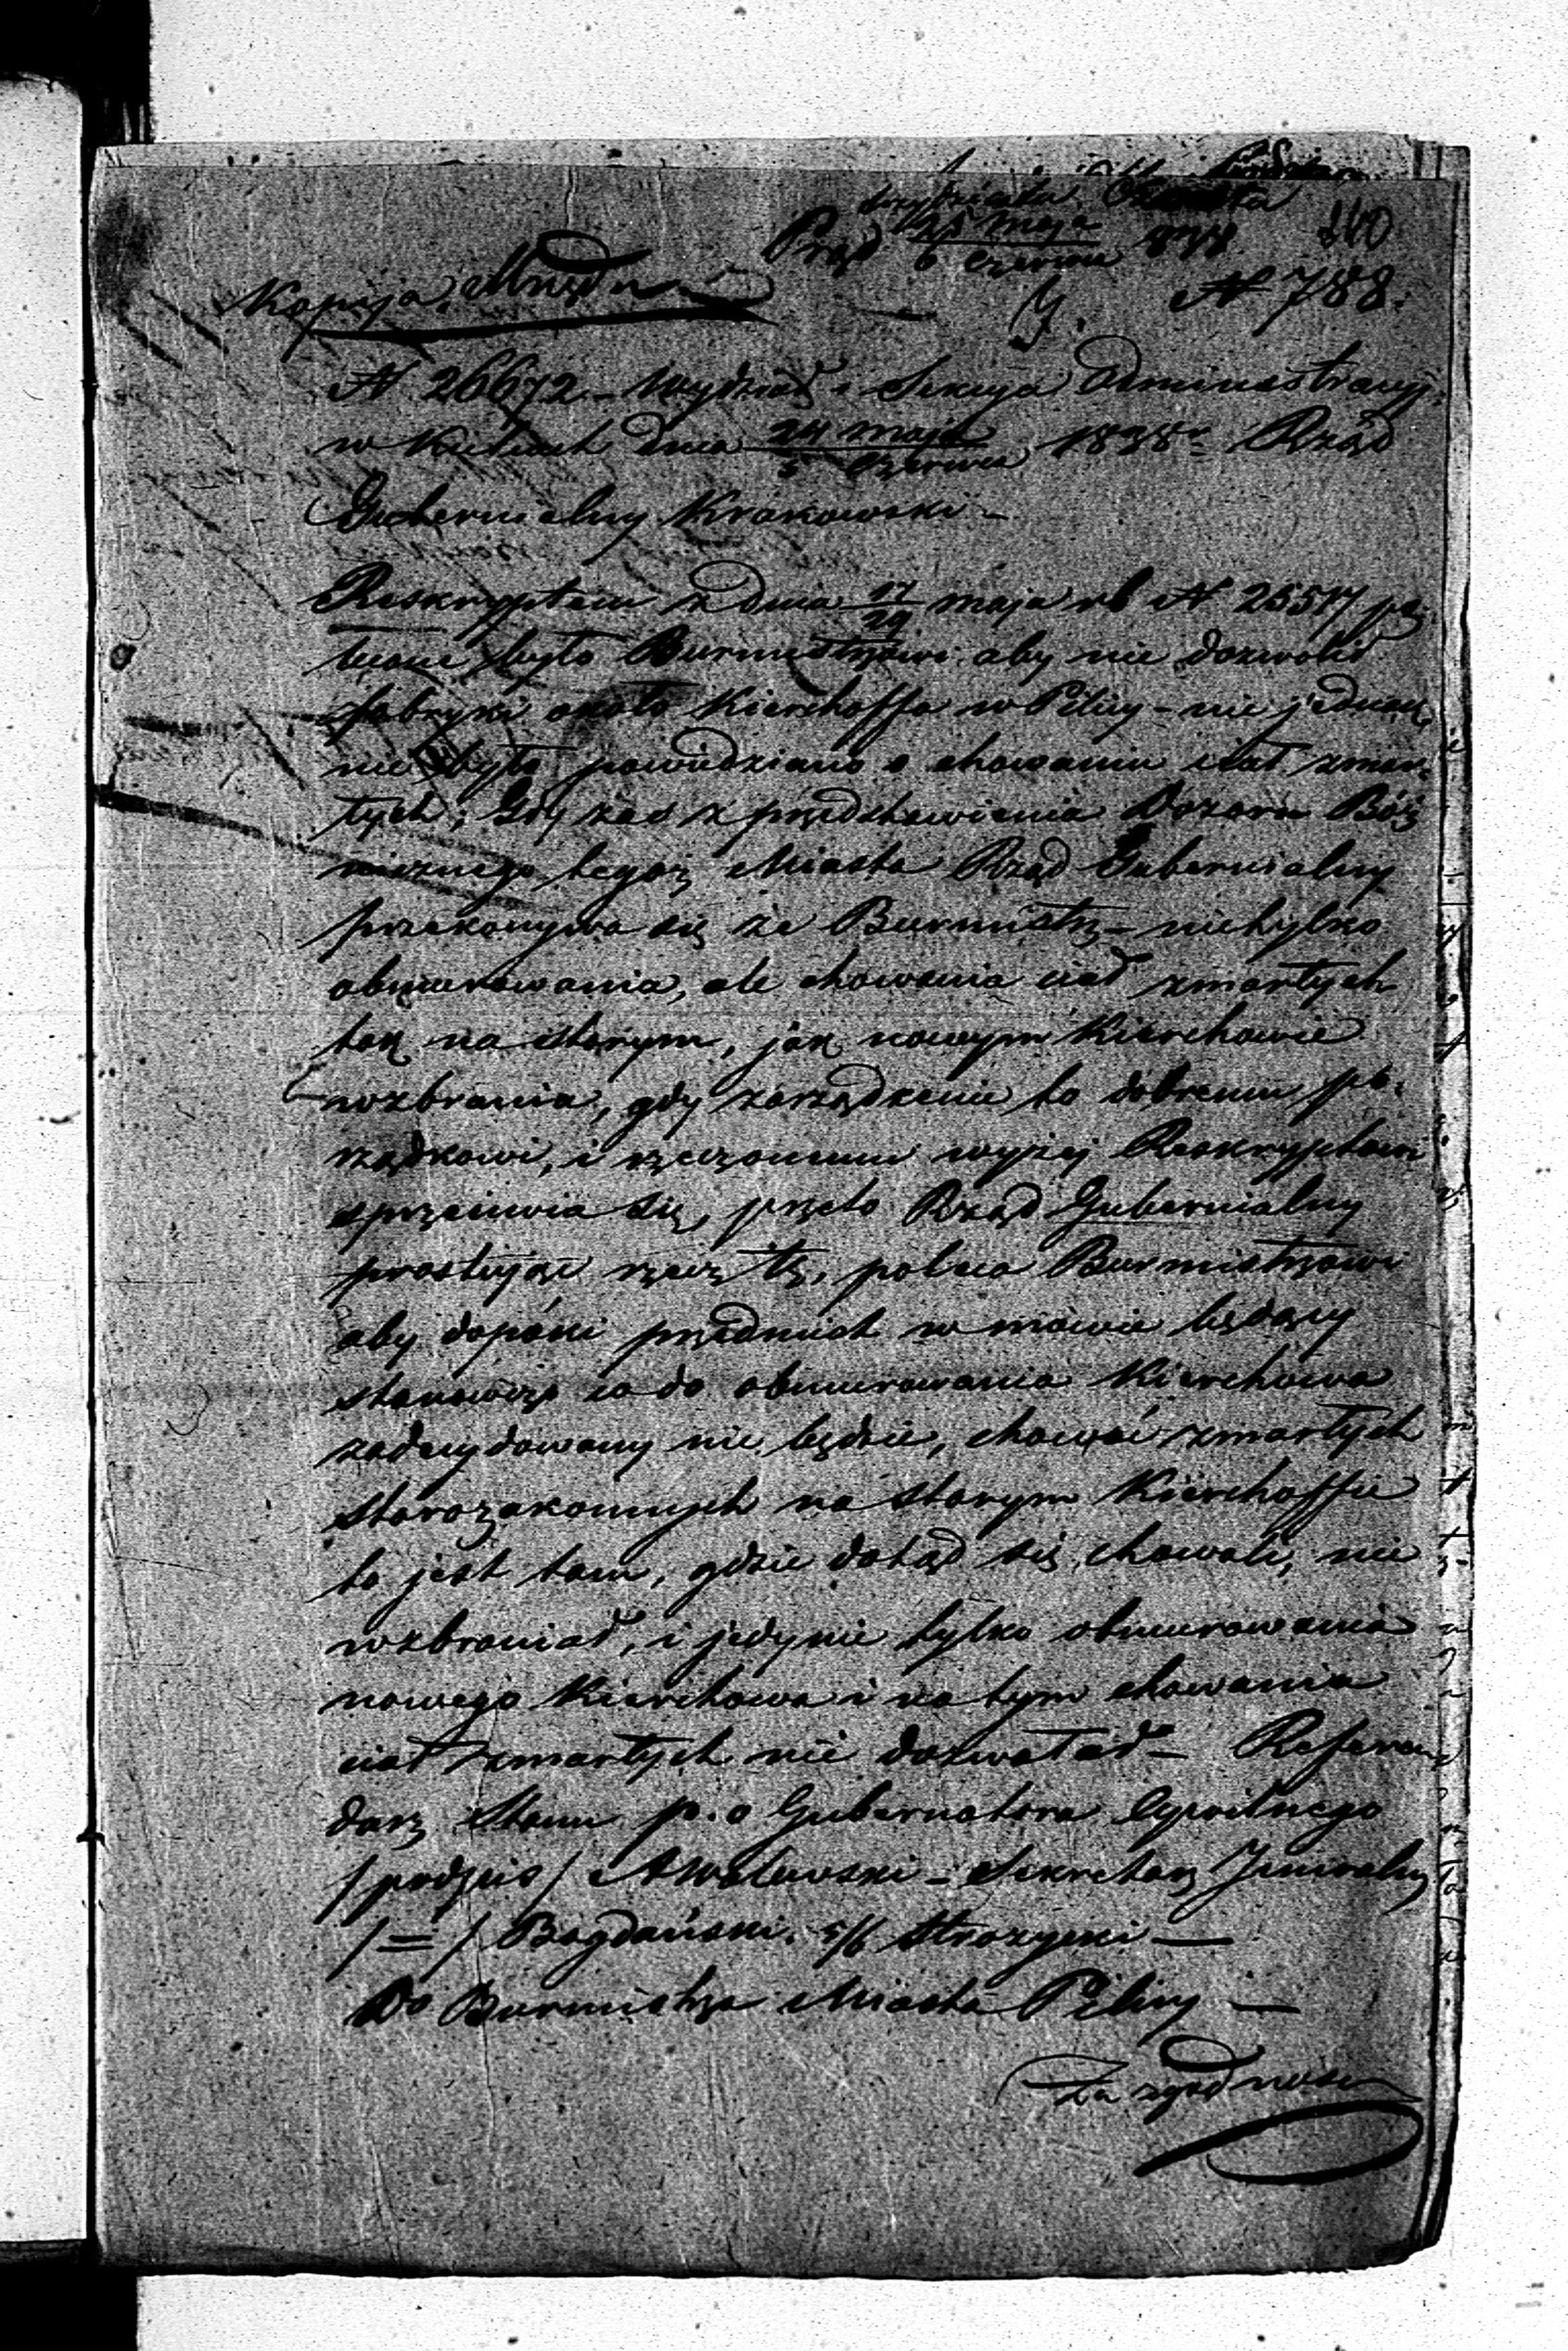 25 maja
6 czerwca 838
110
Kopija, Urzędu
N 788.
N 26672 – Wydział i Sekcja Administracyj.
w Kielcach dnia 24 maja / 5 Czerwca 1838 r. Rząd
Gubernialny Krakowski –
Reskryptem z dnia 17/29 maja rb N 25517 po
lecone było Burmistrzowi aby nie dozwolił
fabryki około Kierchoffa w Pilicy – nie jednak
nie było powiedziano o chowaniu ciał zmar
łych, Gdy zaś z przedstawienia Dozoru Bóż
nicznego tegoż Miasta Rząd Gubernialny
przekonywa się że Burmistrz – nietylko
obmurowania, ale chowania ciał zmarłych
tak na starym, jak nowym Kierchowie
wzbrania, gdy zarządzenie to dobremu po
rządkowi, i rzeczonemu wyżej Reskryptowi
sprzeciwia się, przeto Rząd Gubernialny
prostując rzecz tę, poleca Burmistrzowi
aby dopóki przedmiot w mowie będący
stanowczo co do obmurowania Kierchowa
zadecydowany nie będzie, chować zmarłych
starozakonnych na starym Kierchoffie
to jest tam, gdzie dotąd się chowali, nie
wzbraniał, i jedynie tylko obmurowania
nowego Kierchowa i na tym chowania
ciał zmarłych nie dozwalał – Referen
darz Stanu p. o Gubernatora Cywilnego
/podpis/ A Walewski – Sekretarz Jeneralny
/=/ Bogdański. Strożycki –
Do Burmistrza Miasta Pilicy –
Za zgodność